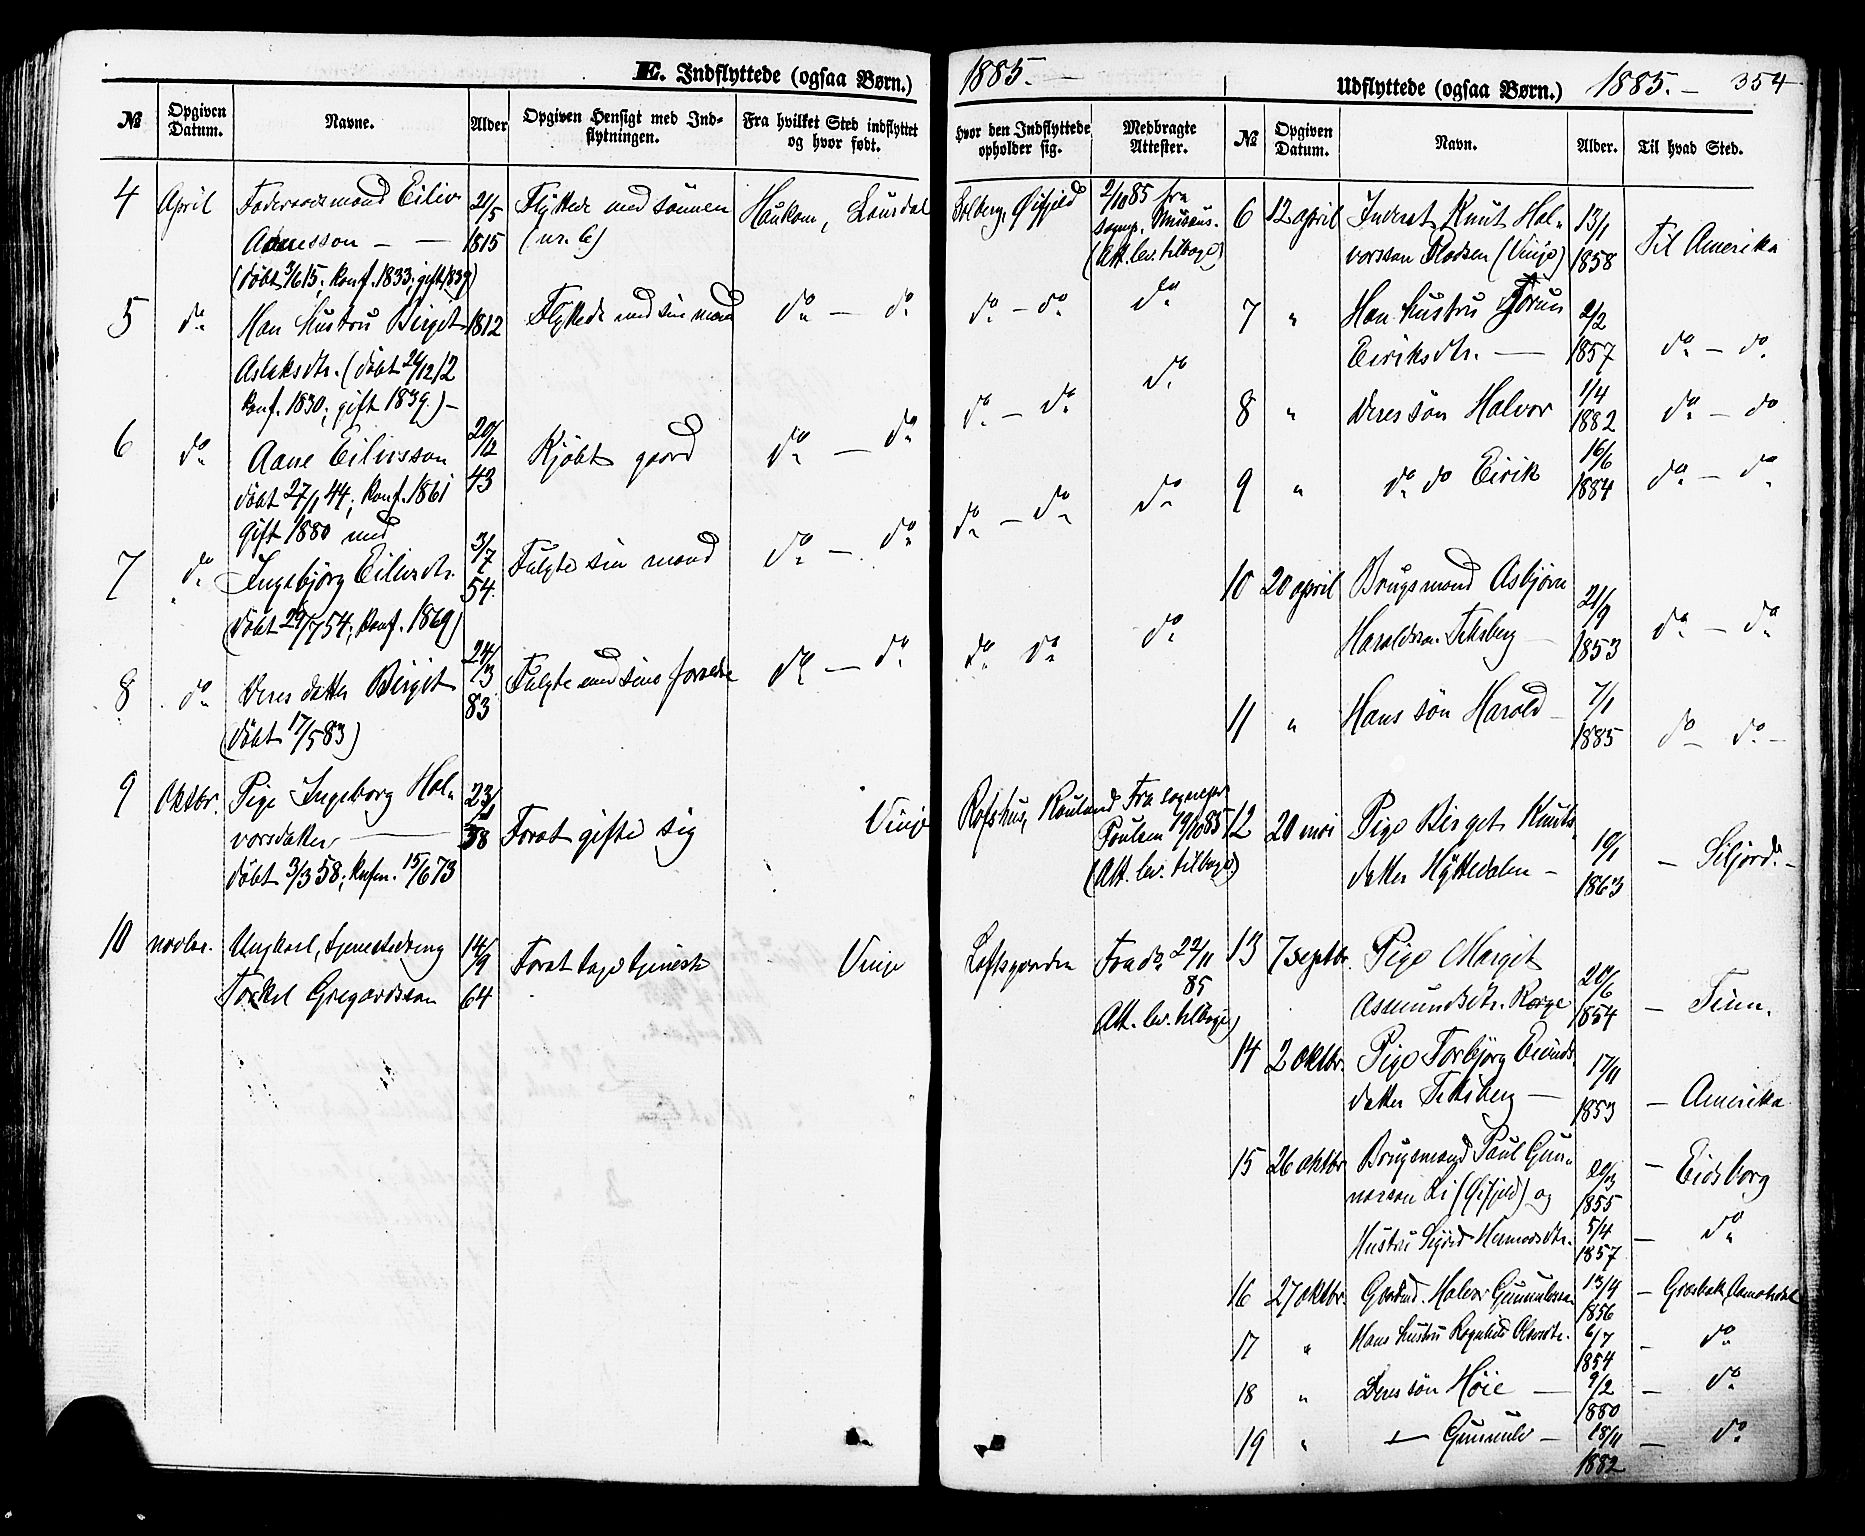 E. Indflyttede (ogsaa Børn.)
№
Opgiven Datum.
Navne.
Alder
Opgiven Hensigt med Ind-
flytningen.
Fra hvilket Sted indflyttet
og hvor født.
4 April Föderaadsmand Eiliv 21/5 Flyttede med sönnen Haukom, Laurdal
Aanesson — — 1815 (nr. 6)
(döbt 3/6 15; konf. 1833; gift 1839)
5 do Han Hustru Birgit 1812 Flyttede med sin mand do — do
Aslaksdtr. (döbt 26/12 12
konf. 1830; gift 1839.) —
6 do Aane Eilivsson 20/12 43 Kjöbt gaard do — do
döbt 27/1 44; konf. 1861
gift 1880 med
7 do Ingebjörg Eilivsdtr. 3/7 54. Fulgte sin mand do — do
(döbt 29/7 54; konf. 1869)
8 do Deres datter Birgit 24/3 83 Fulgte med sine forældre do — do
(döbt 17/5 83)
9 Oktbr. Pige Ingeborg Hal-
vorsdatter — 23/1 58 Forat gifte sig Vinje
döbt 3/3 58; konfm. 15/6 73
10 novbr. Ungkarl, tjenestedreng 14/9 Forat tage tjeneste Vinje
Torkel Gregardsson 64
1885. —
hvor den Indflyttede
opholder sig.
Medbragte
Attester.
Solberg, Öifjeld 2/10 85 fra
sognep.
(Att. lev. tilbage)
do — do do
do — do do
do — do do
do do do
Rofshus, Rauland Fra sognepr.
Poulsen 19/10 85
(Att. lev. tilbage)
Loftsgarden Fra do 22/11
85
Att. lev. tilbage)
Udflyttede (ogsaa Børn.) 1885. — 354
№
Opgiven
Datum.
Navn.
Alder.
Til hvad Sted.
6 12 april Inderst Knut Hal- 13/1
vorsson Flodsen (Vinje) 1858 Til Amerika
7 " Han Hustru Jorun 2/2
Eiriksdtr. — 1857 do — do
8 " deres sön Halvor 1/4 1882 do — do
9 " do do Eirik 16/6 1884 do — do
10 20 april Brugsmand Asbjörn 21/9
Haraldssn. Teksberg — 1853 do — do
11 " Hans sön Harald — 7/1 1885 do — do —
12 20 mai Pige Birget Knuts-
datter Hyttedalen — 10/1 1863 — Siljord. —
13 7 septbr. Pige Margit 20/6
Asmundsdtr. Korge 1854 — Tinn.
14 2 oktbr. Pige Torbjörg Eivinds- 17/11
datter Teksberg — 1853 — Amerika
15 26 oktbr Brugsmand Paul Gun- 20/3 — Eidsborg
narson Li (Öifjeld) og 1855
Hustru Sigrid Hermodsdtr. 5/4 1857 — do
16 27 oktbr. Gaardmd. Halvor Gunnulvsson 13/4 1856 —
17 " Hans Hustru Ragnhild Olavsdtr. 6/7 1854 — do
18 " Deres sön Höie — 9/2 1880 — do
19 " — Gunnulv — 18/11 1882 — do